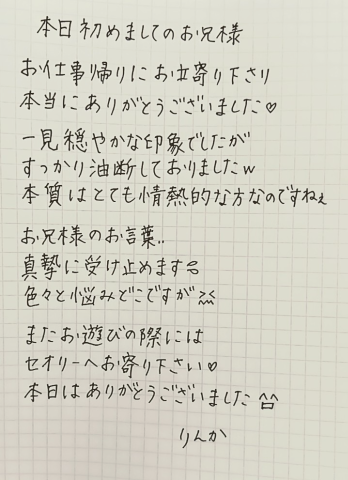 本日初めましてのお兄様
お仕事帰りにお立寄り下さり
本当にありがとうございました♡
一見穏やかな印象でしたが
すっかり油断しておりましたw
本質はとても情熱的な方なのですねぇ
お兄様のお言葉..
真摯に受け止めます
色々と悩みどこですが
またお遊びの際には
セオリーへお寄り下さい♡
本日はありがとうございました^^
りんか